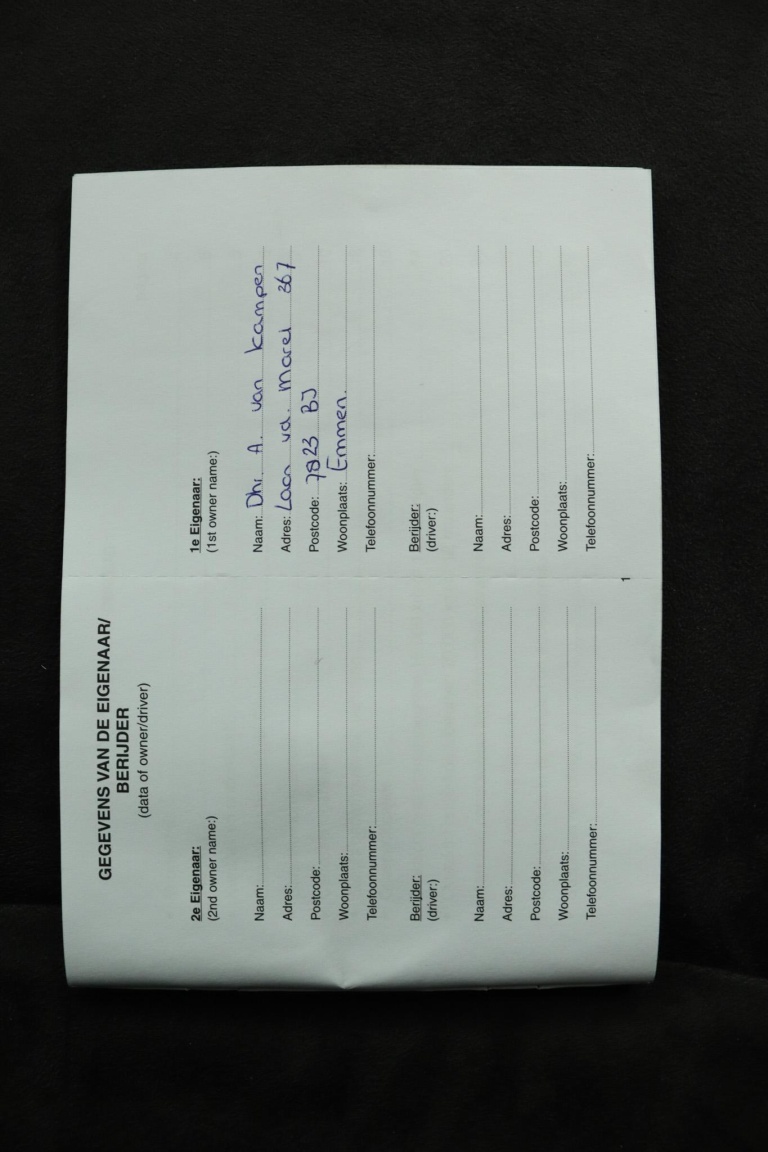 GEGEVENS VAN DE EIGENAAR/
BERIJDER
(data of owner/driver)
2e Eigenaar:
(2nd owner name:)
Naam:
Adres:
Postcode:
Woonplaats:
Telefoonnummer:
Berijder:
(driver:)
Naam:
Adres:
Postcode:
Woonplaats:
Telefoonnummer:
1e Eigenaar:
(1st owner name:)
Naam: Dhr. A. van Kampen
Adres: Laan vd. Marel 367
Postcode: 7823 BJ
Woonplaats: Emmen.
Telefoonnummer:
Berijder:
(driver:)
Naam:
Adres:
Postcode:
Woonplaats:
Telefoonnummer:
1